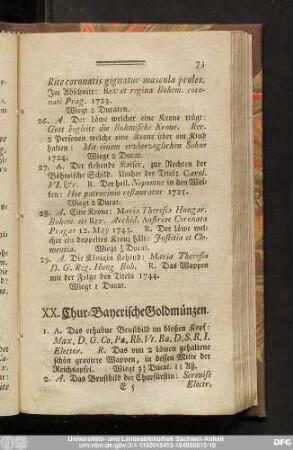 73
Rite coronatis gignatur mascula proles.
Im Abschnitt: Rex et regina Bohem. coro-
nati Prag. 1723.
Wiegt 2 Ducaten.
26. A. Der Löwe welcher eine Krone trägt:
Gott begleite die Böhmische Krone. Rev.
2 Personen welche eine Krone über ein Kind
halten: Mit einem erzherzoglichen Sohne
1724. Wiegt 2 Ducat.
27. A. Der stehende Kaiser, zur Rechten der
Böhmische Schild. Umher der Titel: Carol.
VI. &c. R. Der heil. Nepomuc in den Wol-
ken: Hoc patrocinio restauratur 1725.
Wiegt 2 Ducat.
28. A. Eine Krone: Maria Theresia Hungar.
Bohem. et Rex. Archid. Austriae Coronata
Pragae 12. May 1743. R. Der Löwe wel-
cher ein doppeltes Kreuz hält: Justitia et Cle-
mentia. Wiegt Ducat.
29. A. Die Königin stehend: Maria Theresia
D. G. Reg. Hung. Boh. R. Das Wappen
mit der Folge des Titels 1744.
Wiegt 1 Ducat.
XX. Chur-Bayerische Goldmünzen.
1. A. Das erhabne Brustbild im bloßen Kopf:
Max, D, G. Co, Pa, Rh. Vt. Ba, D, S. R, I.
Elector. R. Das von 2 Löwen gehaltene
schön gravirte Wappen, in dessen Mitte der
Reichsapfel. Wiegt Ducat. 11 Aß.
2. A. Das Brustbild der Churfürstin: Serenis
E 5 Electr.
Universitäts- und Landesbibliothek Sachsen-Anhalt